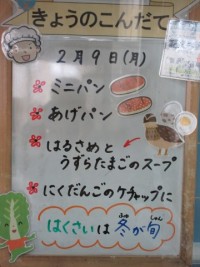 きょうのこんだて
2月9日(月)
ミニパン
あげパン
はるさめと
うずらたまごのスープ
にくだんごのケチャップに
はくさいは冬が旬
ふゆ
しゅん